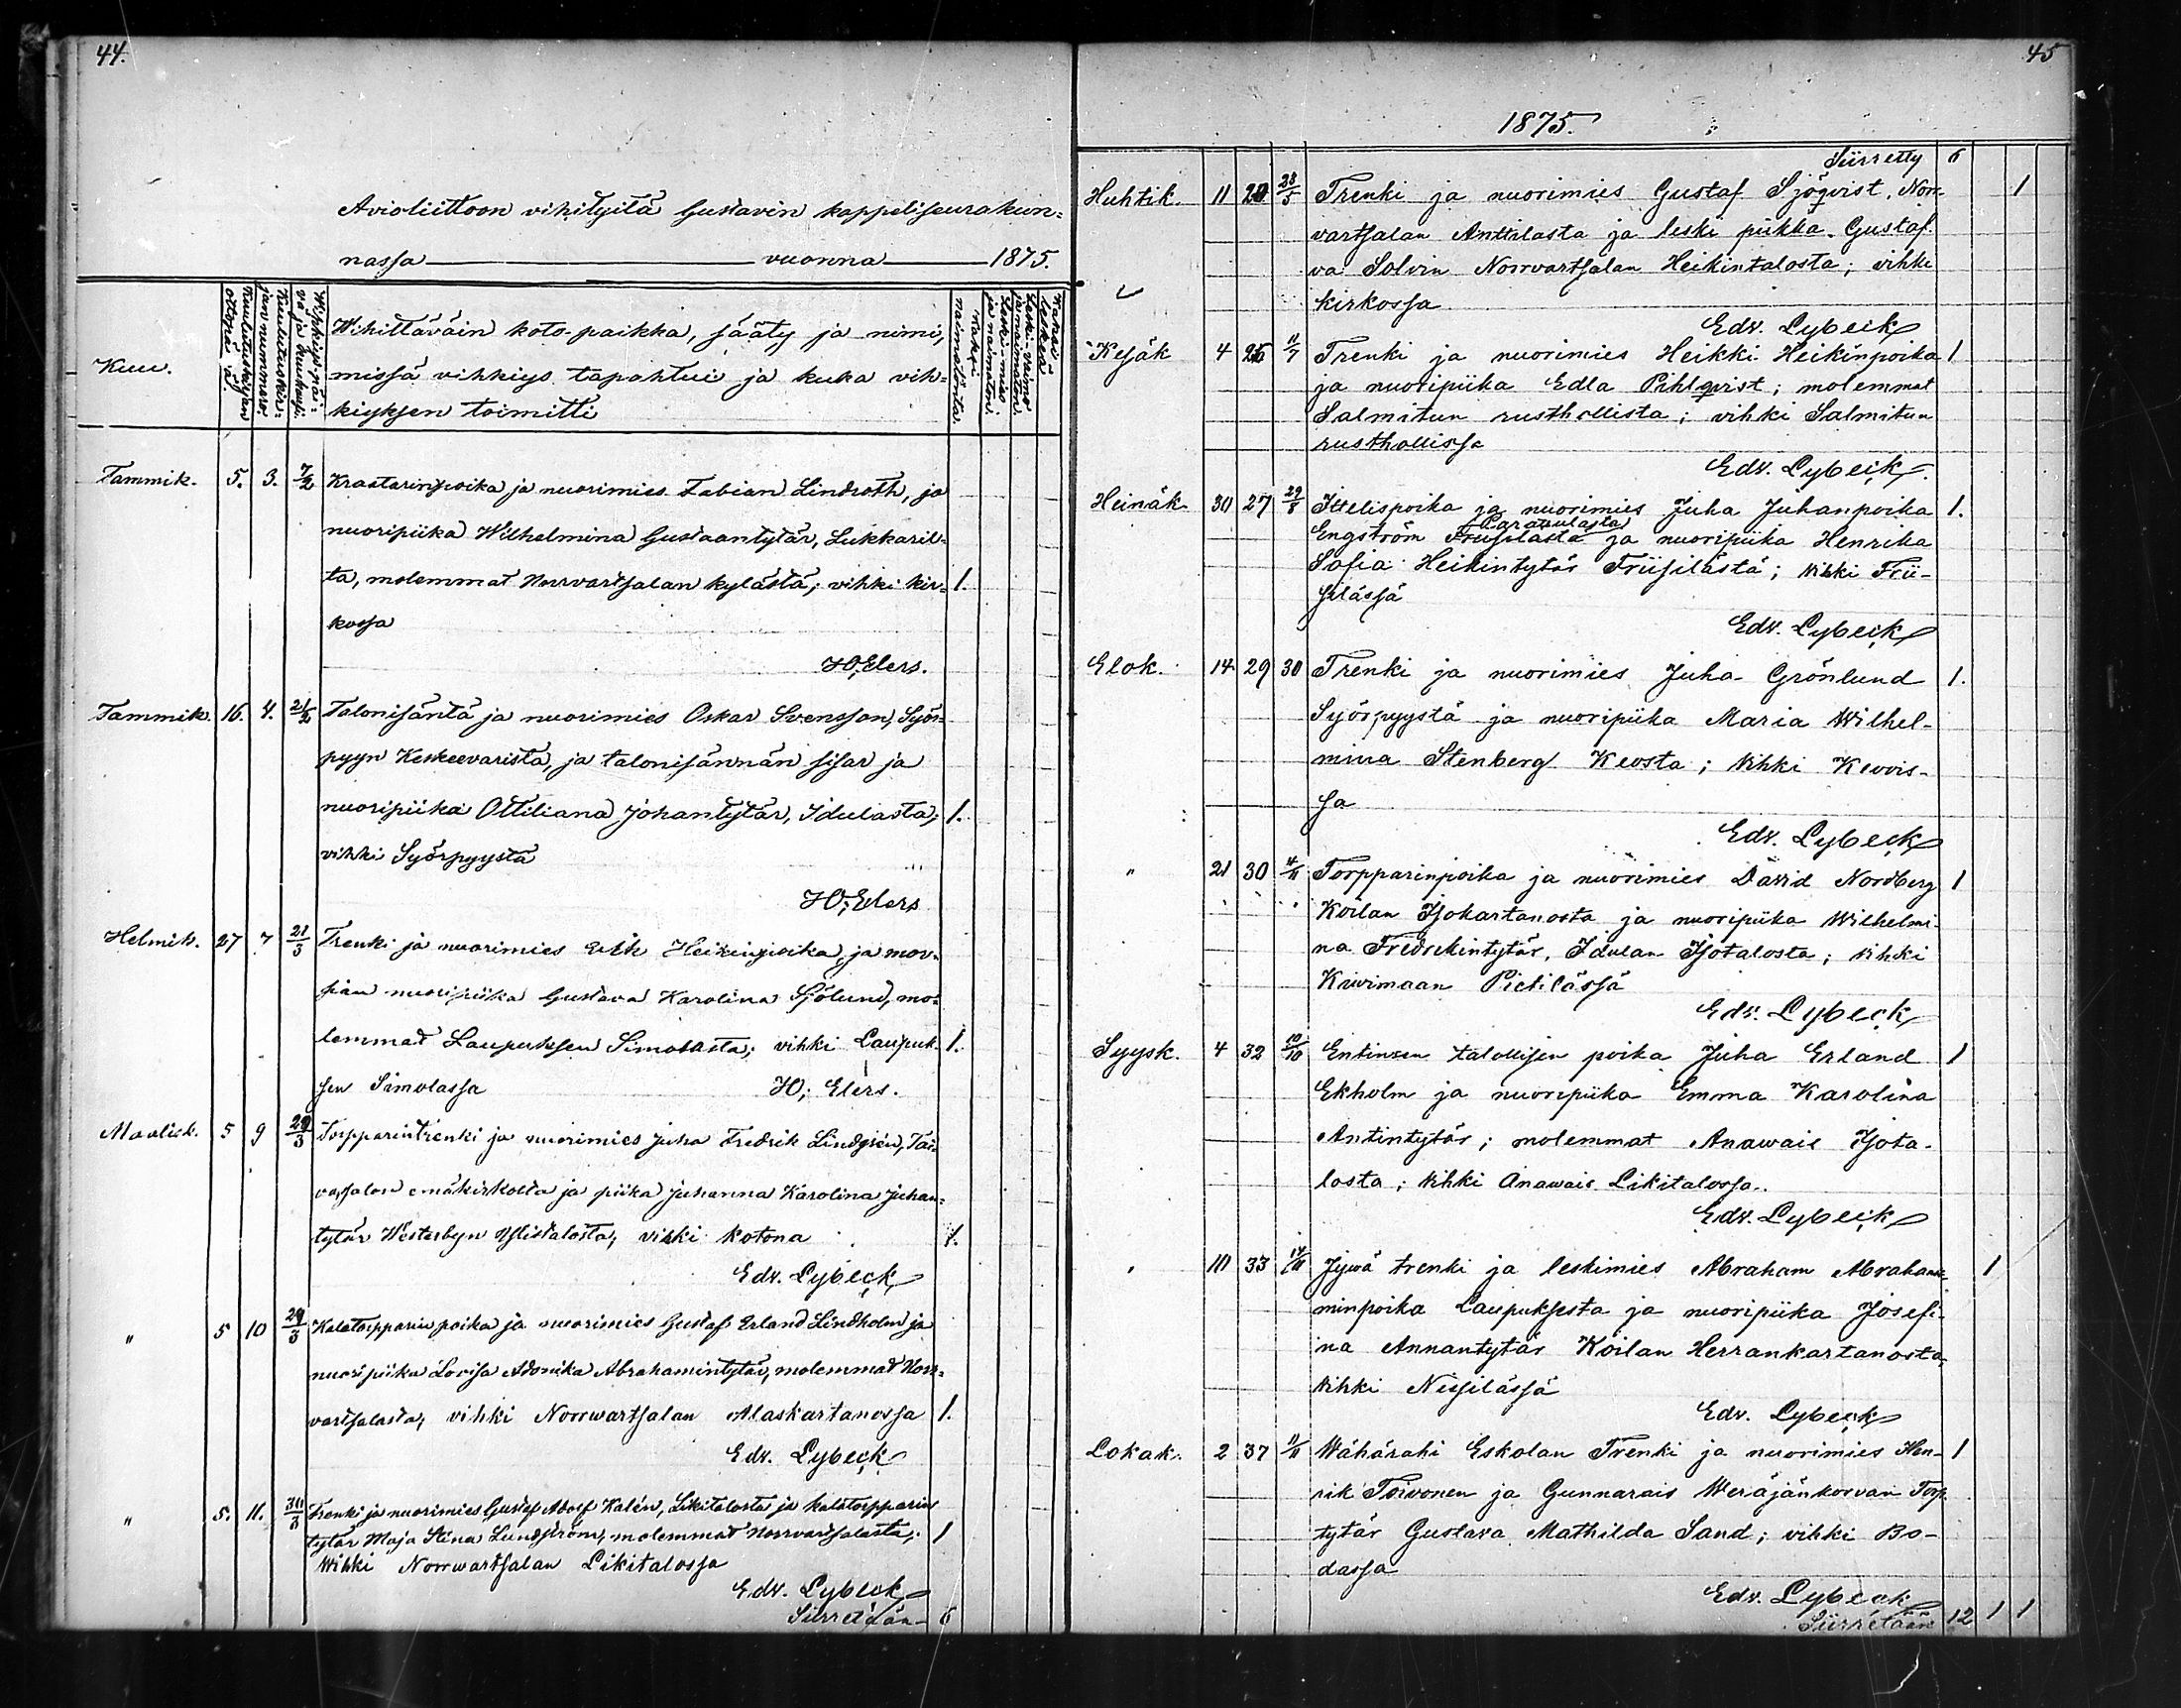 44.
Avioliittoon vihityitä Gustavin kappeliseurakun-
nassa vuonna 1875.
Kuu.
Kuulutuskirjan ottopäiwä.
Kuulutuskirjan nuomero
Wihkiys-päivä ja kuukausi.
Wihittäväin koto-paikka, sääty ja nimi,
missä vihkiys tapahtui ja kuka vih-
kiyksen toimitti
Kaksi naimatointa.
Leski-mies ja naimaton.
Leski-vaimo ja naimaton.
Kaksi leskeä
Tammik. 5. 3. 7/2 Kraatarinpoika ja nuorimies Fabian Lindroth, ja
nuoripiika Wilhelmina Gustaantytär, Lukkaril-
ta, molemmat Norrvartsalan kylästä; vihki kir- 1.
kossa
Elers.
Tammik. 16. 4. 21/2 Talonisäntä ja nuorimies Oskar Svensson, Syör-
pyyn Keskeevarista, ja talonisännän sisar ja
nuoripiika Ottiliana Johantytär, Idulasta; 1.
vihki Syörpyystä
Elers
Helmik. 27 7 21/3 Trenki ja nuorimies Erik Heikinpoika, ja
nuoripiika Gustava Karolina Sjölund, mo-
lemmat Laupuksen Simolasta; vihki Laupuk- 1.
sen Simolassa Elers.
Maalisk. 5 9 29/3 Torpparintrenki ja nuorimies Juha Fredrik Lindgrén, Tai-
vassalon emäkirkolta ja piika Juhanna Karolina Juhan-
tytär Westerbyn Ylistalosta; vihki kotona 1.
Edv. Lybeck
" 5 10 29/3 Kalatorpparin poika ja nuorimies Gustaf Erland Lindholm ja
nuoripiika Lovisa Adonika Abrahamintytär, molemmat Norr-
vartsalasta; vihki Norrwartsalan Alaskartanossa 1.
Edv. Lybeck
" 5. 11. Trenki ja nuorimies Gustaf Adolf Kalén, Likitalosta ja kalatorpparin
tytär Maja Stina Lundström, molemmat Norrvartsalasta; 1
Wihki Norrwartsalan Likitalossa
Edv. Lybeck
Siirretään 6
45
1875.
Siirretty 6
Huhtik. 11 20 23/5 Trenki ja nuorimies Gustaf Sjöqvist, Norr- 1
vartsalan Anttilasta ja leski piikka Gustaf-
va Solvin Norrvartsalan Heikintalosta; vihki
kirkossa
Edv. Lybeck
Kesäk 4 25 11/7 Trenki ja nuorimies Heikki Heikinpoika 1
ja nuoripiika Edla Pihlqvist; molemmat
Salmitun rusthollista; vihki Salmitun
rusthollissa
Edv. Lybeck.
Heinäk. 30 27 29/8 Ittelispoika ja nuorimies Juha Juhanpoika 1.
Engström Friisilästä ja nuoripiika Henrika
Sofia Heikintytär Friisilästä; Wihki Frii-
silässä
Edv. Lybeck
Elok. 14 29 30 Trenki ja nuorimies Juha Grönlund 1.
Syörpyystä ja nuoripiika Maria Wilhel-
mina Stenberg Keosta; Wihki Keois-
sa
Edv. Lybeck
" 21 30 Torpparinpoika ja nuorimies David Nordberg 1
Koilan Isokartanosta ja nuoripiika Wilhelmi-
na Fredrekintytär, Idulan Isotalosta; Wihki
Kiwimaan Pietilässä
Edv. Lybeck
Syysk. 4 32 10/10 Entinen talollisen poika Juha Erland 1
Ekholm ja nuoripiika Emma Karolina
Antintytär; molemmat Anawais Isota-
losta; Wihki Anawais Likitalossa.
Edv. Lybeck
" 10 33 Jywä trenki ja leskimies Abraham Abraham- 1
minpoika Laupuksesta ja nuoripiika Josefi-
na Annantytär Koilan Herrankartanosta,
Wihki Nissilässä
Edv. Lybeck
Lokak. 2 37 11/11 Wähärahi Eskolan Trenki ja nuorimies Hen- 1
rik Toivonen ja Gunnarais Weräjänkorvan Torp.
tytär Gustava Mathilda Sand; vihki Bo-
dassa
Edv. Lybeck
Siirretään 12 1 1